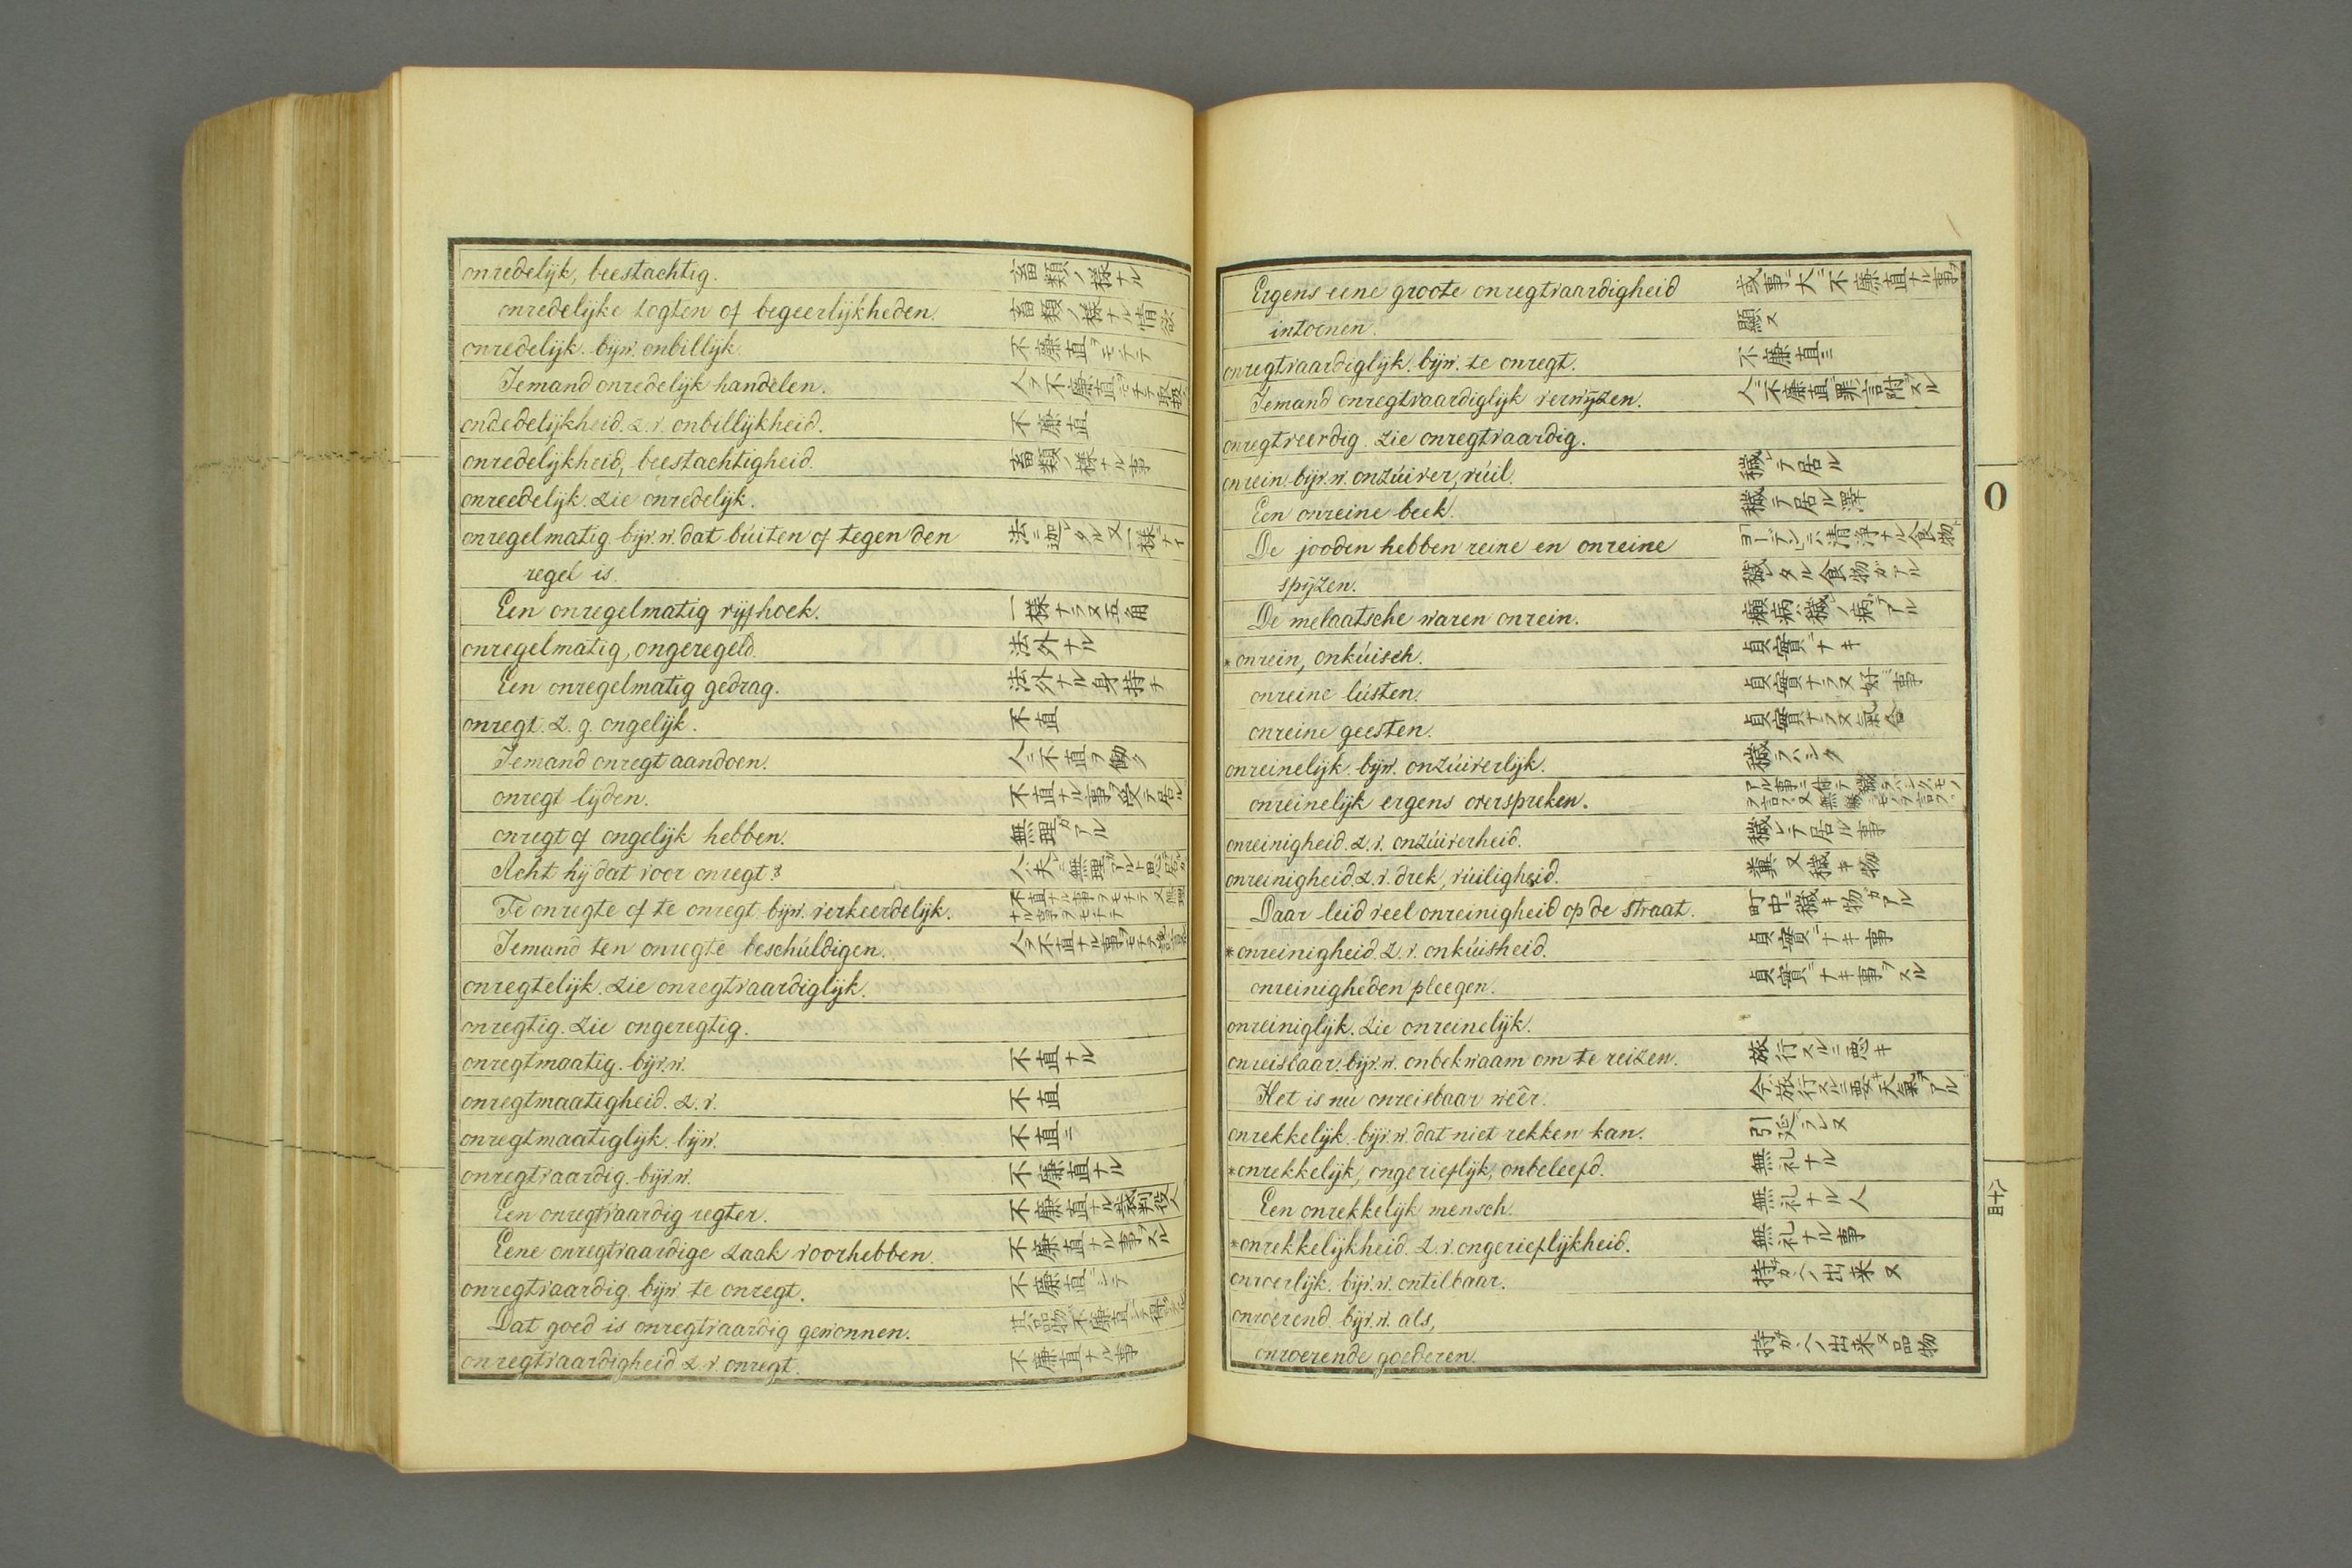 onredelijk, beestachtig. 畜類ノ様ナル
onredelijke togten of begeerlijkheden. 畜類ノ様ナル情欲
onredelijk. bijw. onbillijk. 不廉直ヲモチテ
Iemand onredelijk handelen. 人ヲ不廉直ヲモチテ取扱
ondedelijkheid. z. v. onbillijkheid. 不廉直
onredelijkheid, beestachtigheid. 畜類ノ様ナル事
onreedelijk. zie onredelijk.
onregelmatig. bijv. w. dat buiten of tegen den 法ニ迦レタル又一様ニナイ
regel is.
Een onregelmatig vijfhoek. 一様ナラヌ五角
onregelmatig, ongeregeld. 法外ナル
Een onregelmatig gedrag. 法外ナル身持チ
onregt. z. g. ongelijk. 不直
Iemand onregt aandoen. 人ニ不直ヲ働ク
onregt lijden. 不直ナル事ヲ受テ居ル
onregt of ongelijk hebben. 無理ガアル
Acht hij dat voor onregt?
Te onregte of te onregt. bijw. verkeerdelijk. 不直ナル事ヲモチテ又無理ナル事ヲモチテ
Iemand ten onregte beschúldigen. 人ヲ不直ナル事ヲモチテ
onregtelijk. zie onregtvaardiglijk.
onregtig. zie ongeregtig.
onregtmaatig. bijv. w. 不直ナル
onregtmaatigheid. z. v. 不直
onregtmaatiglijk. bijw. 不直ニ
onregtvaardig. bijv. w. 不廉直ナル
Een onregtvaardig regter. 不廉直ナル裁判役人
Eene onregtvaardige zaak voorhebben. 不廉直ナル事ヲスル
onregtvaardig. bijw. te onregt. 不廉直ニシテ
Dat goed is onregtvaardig gewonnen. 其品物ハ不廉直ニテ
onregtvaardigheid. z. v. onregt. 不廉直ナル事
Ergens eene groote onregtvaardigheid 或事ニ大ニ不廉直ナル事ヲ
intoenen. 顯ス
onregtvaardiglijk. bijw. te onregt. 不廉直ニ
Iemand onregtvaardiglijk verwijzen. 人ニ不廉直ニ罪ヲ言附スル
onregtveerdig. zie onregtvaardig.
onrein. bijv. w. onzúiver, vúil. 穢レテ居ル
Een onreine beek. 穢レテ居ル澤
De jooden hebben reine en onreine ヨーデンニハ清浄ナル食物ト
spijzen. 穢レタル食物ガアル
De melaatsche waren onrein. 癩病ハ穢レノ病デアル
* onrein, onkúisch. 貞實デナキ
onreine lústen. 貞實ナラヌ好ミ事
onreine geesten. 貞實ナラヌ氣合
onreinelijk. bijw. onzúiverlijk. 穢ラハシク
onreinelijk ergens overspreken.
onreinigheid. z. v. onzúiverheid. 穢レテ居ル事
onreinigheid. z. v. drek, vúiligheid. 糞又穢キ物
Daar leid veel onreinigheid op de straat. 町中ニ穢キ物ガアル
* onreinigheid. z. v. onkúisheid. 貞實デナキ事
onreinigheden pleegen. 貞實デナキ事ヲスル
onreiniglijk. zie onreinelijk.
onreisbaar. bijv. w. onbekwaam om te reizen. 旅行スルニ悪キ
Het is nu onreisbaar wêêr. 今ハ旅行スルニ悪キ天氣デアル
onrekkelijk. bijv. w. dat niet rekken kan. 引延ラレヌ
* onrekkelijk, ongerieflijk, onbeleefd. 無礼ナル
Een onrekkelijk mensch. 無礼ナル人
* onrekkelijkheid. z. v. ongerieflijkheid. 無礼ナル事
onroerlijk. bijv. w. ontilbaar. 持ガヘノ出来ヌ
onroerend. bijv. w. als,
onroerende goederen. 持ガヘノ出来ヌ品物
O